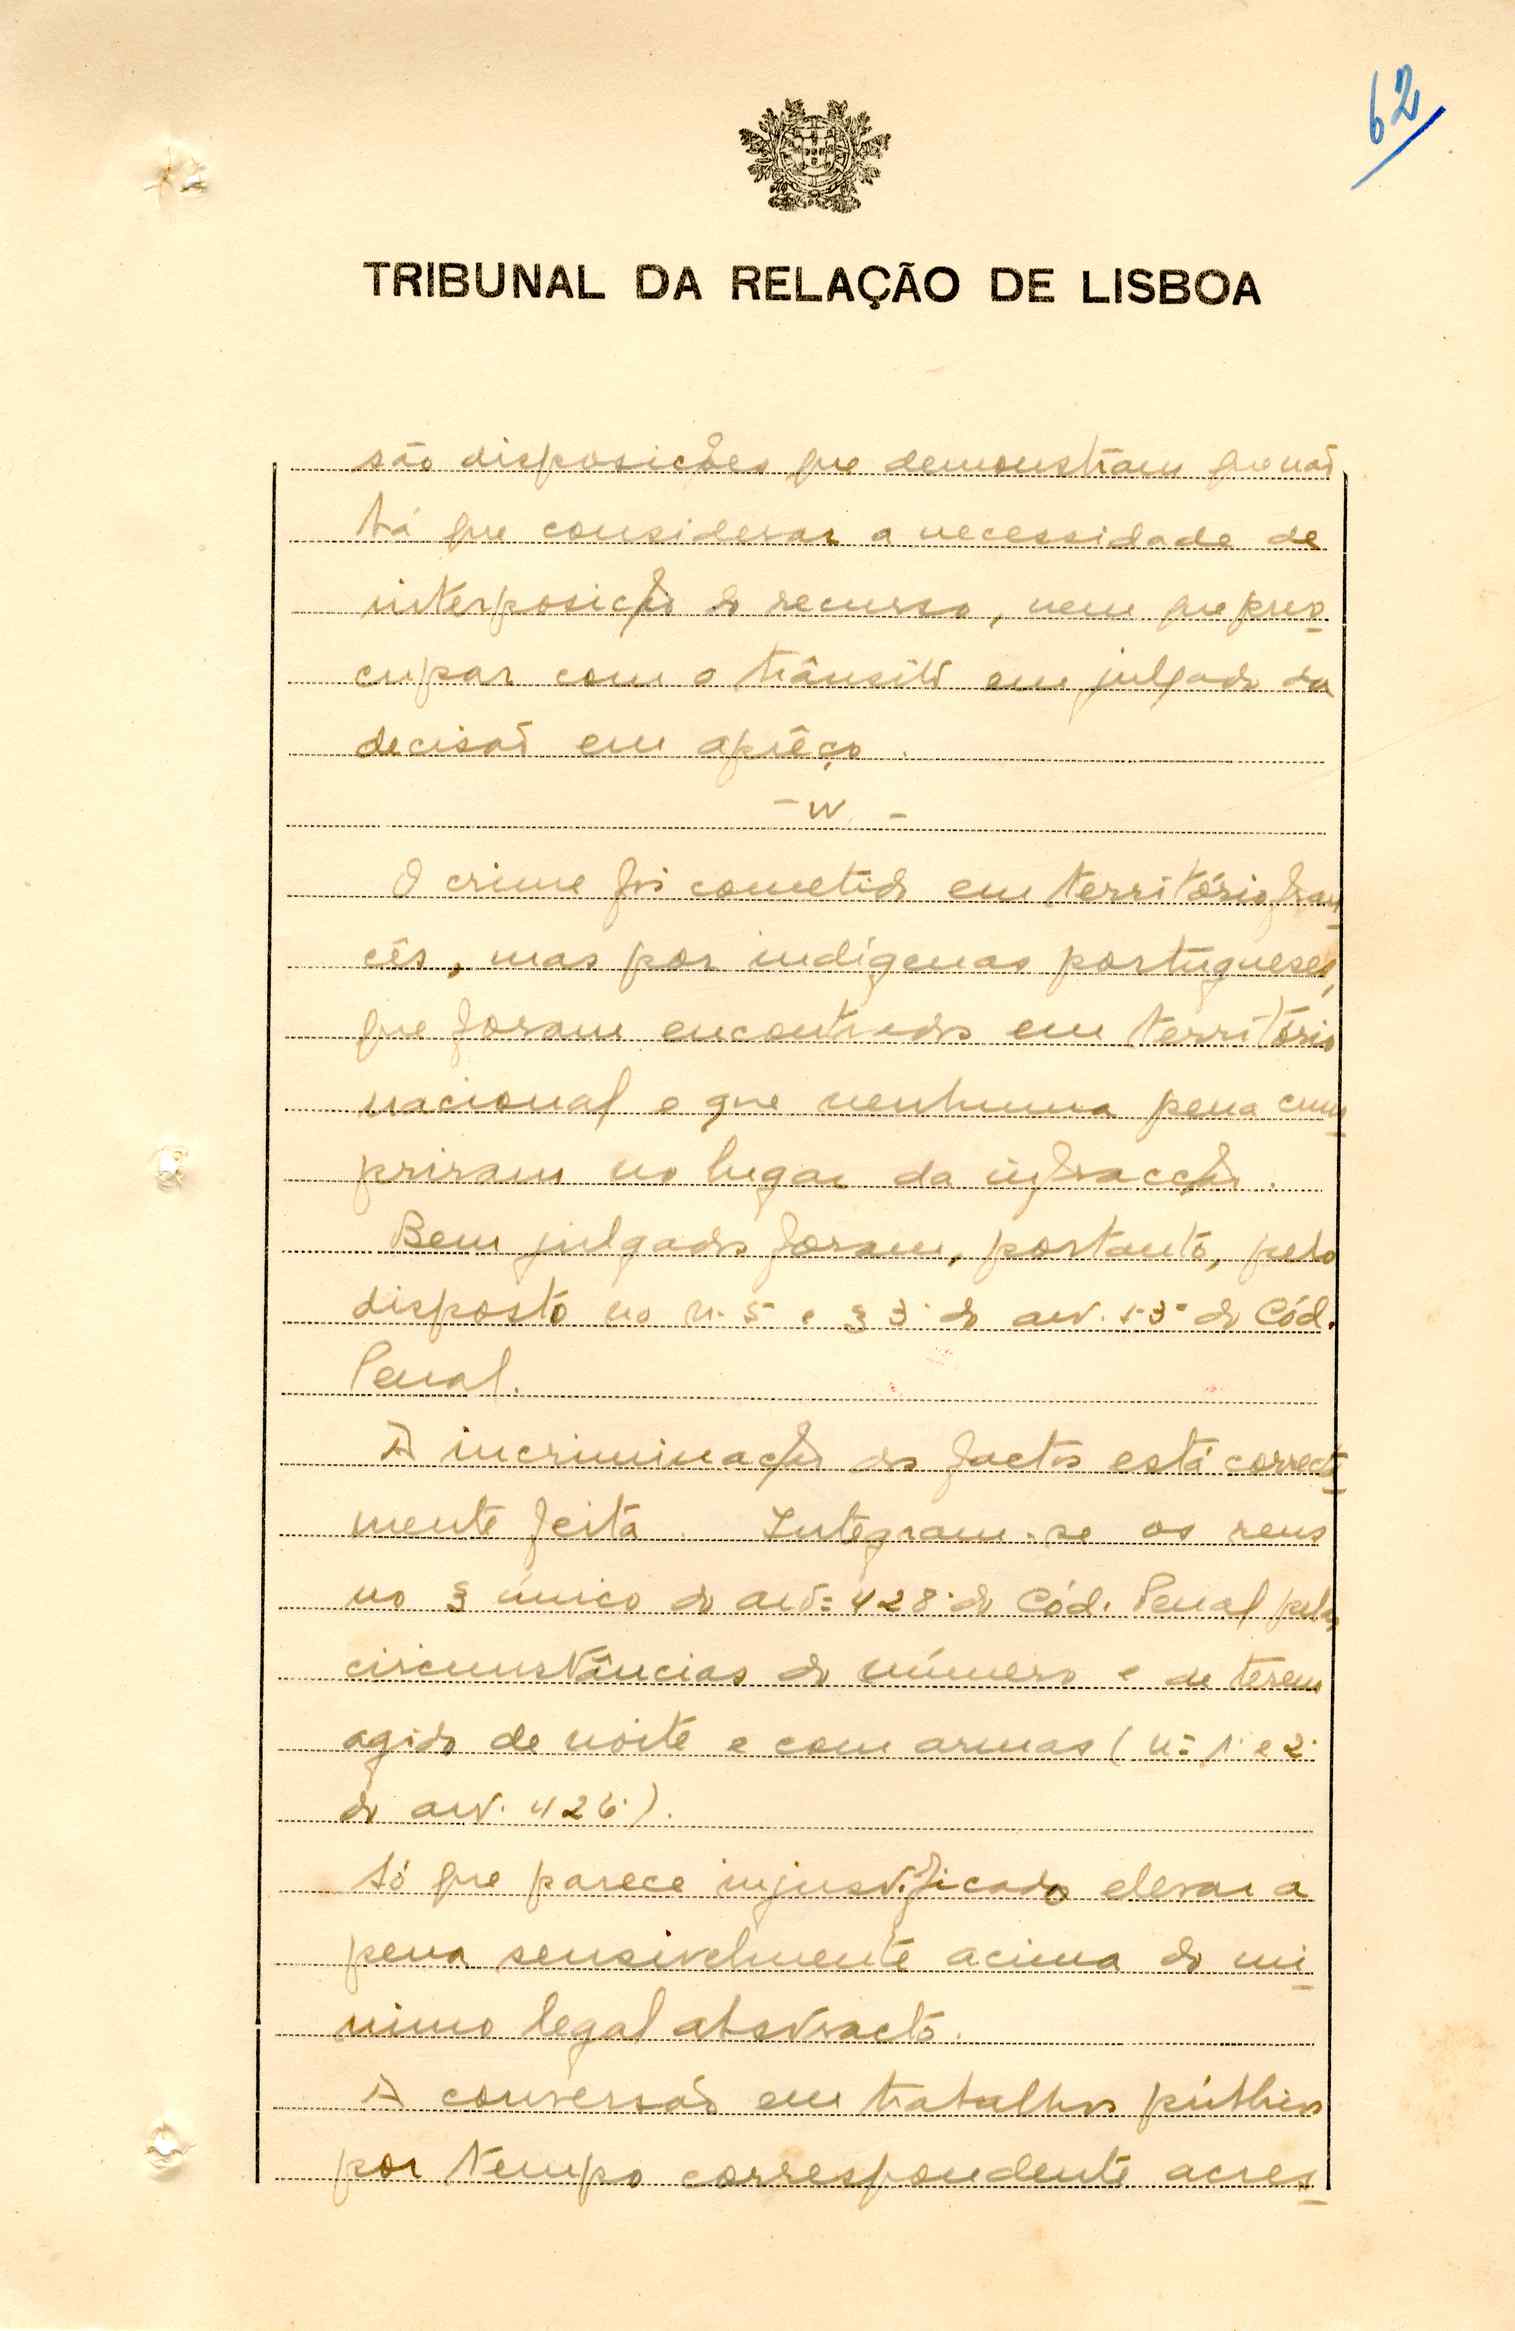 62
TRIBUNAL DA RELAÇÃO DE LISBOA
são disposições que demonstram que não
há que considerar a necessidade de
interposição do recurso, nem que preo-
cupar com o trânsito em julgado da
decisão em aprêço.
O crime foi cometido em território fran-
cês, mas por indígenas portugueses,
que foram encontrados em território
nacional e que nenhuma pena cum-
priram no lugar da infracção.
Bem julgados foram, portanto, pelo
disposto no n. 5 e § 3º do art. 53º do Cód.
Penal.
A incriminação dos factos está correcta-
mente feita. Integram-se os reus
no § único do artº 428º do Cód. Penal pelas
circunstâncias do número e de terem
agido de noite e com armas (nº 1º e 2º
do art. 426º).
Só que parece injustificado elevar a
pena sensivelmente acima do mi-
nimo legal abstracto.
A conversão em trabalhos públicos
por tempo correspondente acres-